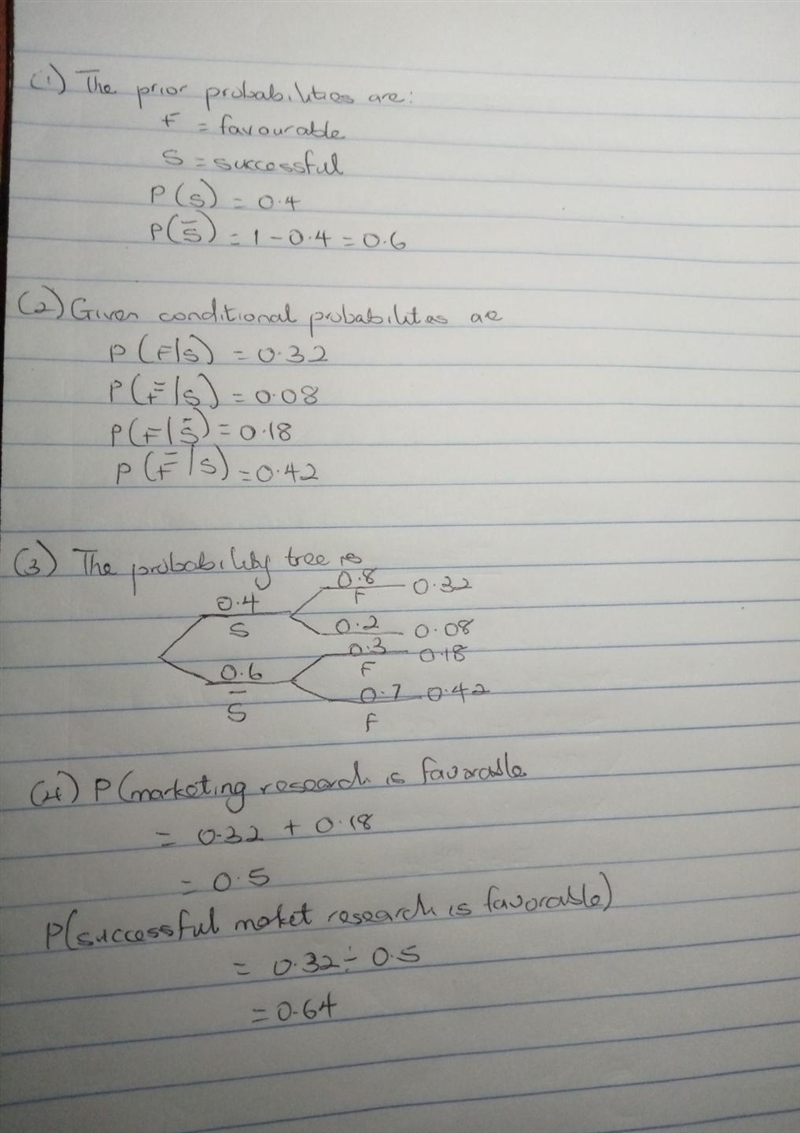 (1) The prior probabilities are:
F = favourable
S = successful
P(S) = 0.4
P(S̅) = 1 - 0.4 = 0.6
(2) Given conditional probabilites are
P(F|S) = 0.32
P(F̅|S) = 0.08
P(F|S̅) = 0.18
P(F̅|S) = 0.42
(3) The probability tree is
0.8 0.32
0.4 F
S 0.2 0.08
0.3 0.18
0.6 F
S̅ 0.7 0.42
F
(4) P(marketing research is favorable
= 0.32 + 0.18
= 0.5
P(successful market research is favorable)
= 0.32 ÷ 0.5
= 0.64